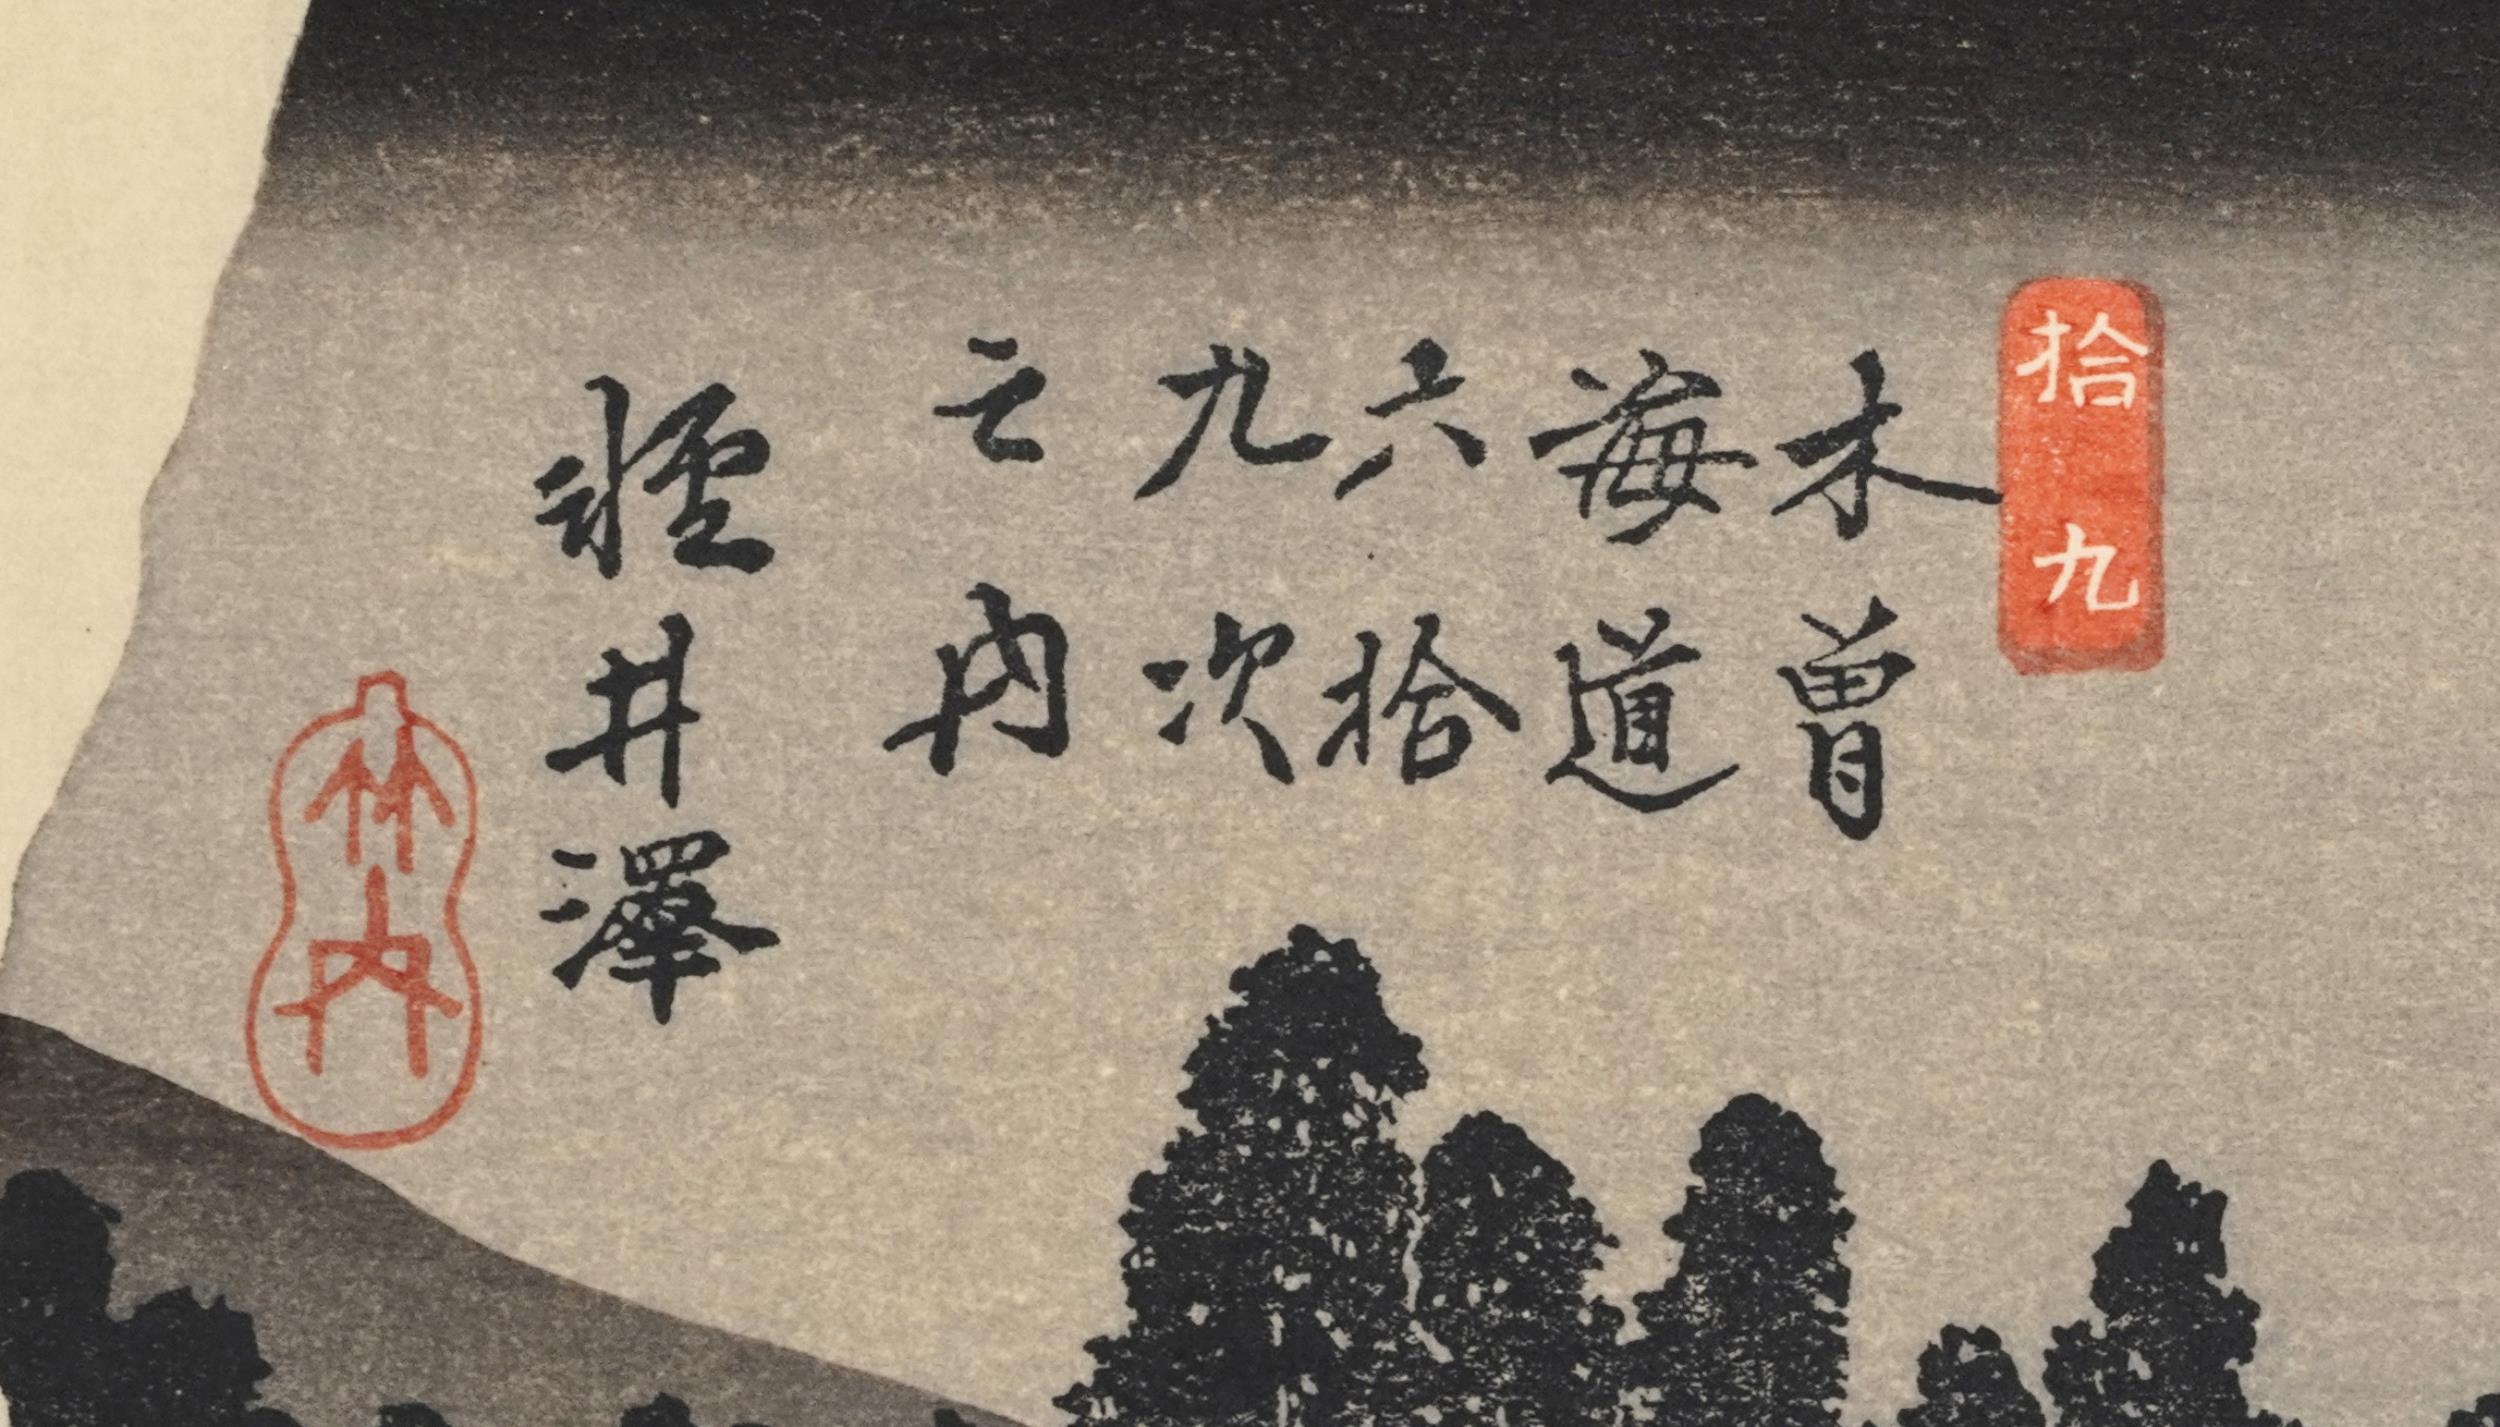 拾九
木曽
海道
六拾
九次
之内
軽井澤
竹内